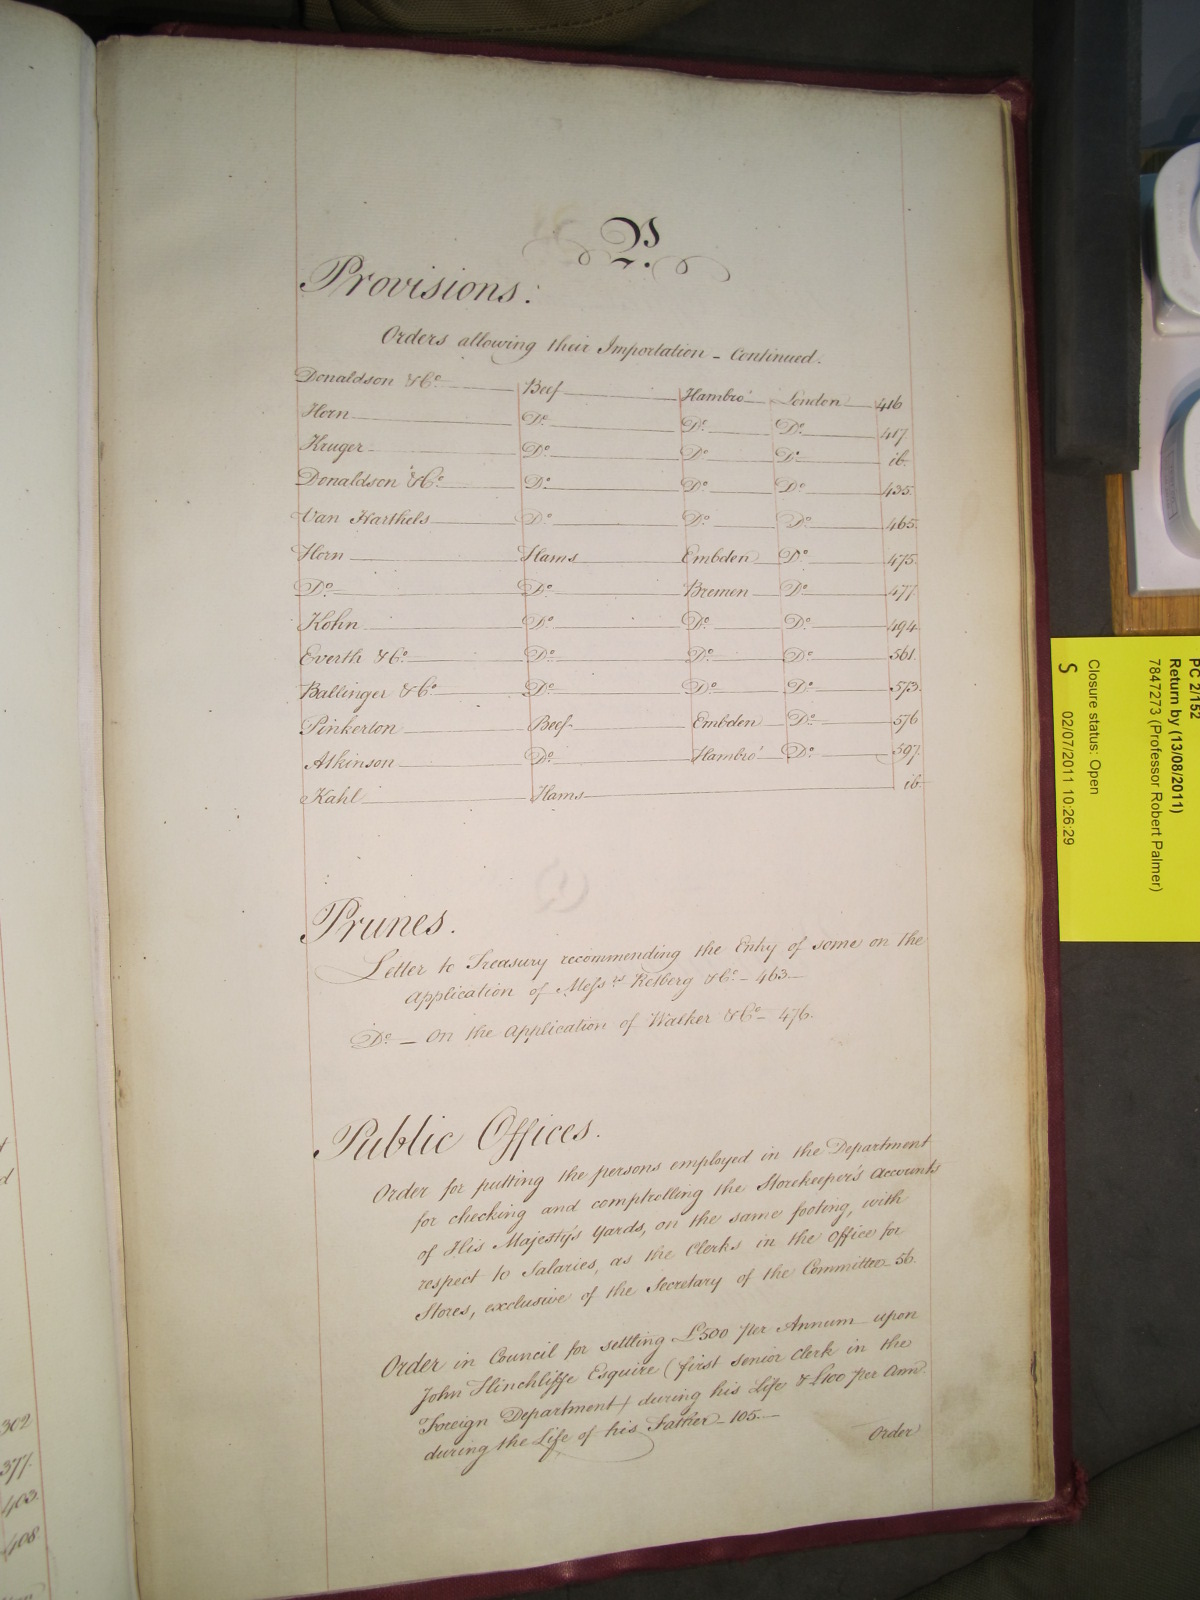 P.
Provisions:
Orders allowing their Importation - Continued.
Donaldson & Co. Beef Hambro' London 416
Horn Do. Do. Do. 417
Kruger Do. Do. Do. ib.
Donaldson & Co. Do. Do. Do. 435
Van Harthels Do. Do. Do. 465
Horn Hams Embden Do. 475
Do. Do. Bremen Do. 477
Kohn Do. Do. Do. 494
Everth & Co. Do. Do. Do. 561
Ballinger & Co. Do. Do. Do. 573
Pinkerton Beef Embden Do. 576
Atkinson Do. Hambro' Do. 597
Kahl Hams ib
Prunes.
Letter to Treasury recommending the Entry of some on the
Application of Messrs Retberg & Co. - 463
Do. - On the Application of Walker & Co. - 476.
Public Offices.
Order for putting the persons employed in the Department
for checking and comptrolling the Storekeeper's Accounts
of His Majesty's Yards, on the same footing, with
respect to Salaries, as the Clerks in the Office for
Stores, exclusive of the Secretary of the Committee 56.
Order in Council for settling £500 per Annum upon
John Hinchliffe Esquire (first senior Clerk in the
Foreign Department) during his Life & £100 per Ann.
during the Life of his Father - 105.
Order
302
377.
403.
408
PC 2/152
Return by (13/08/2011)
7847273 (Professor Robert Palmer)
Closure status: Open
S 02/07/2011 10:26:29